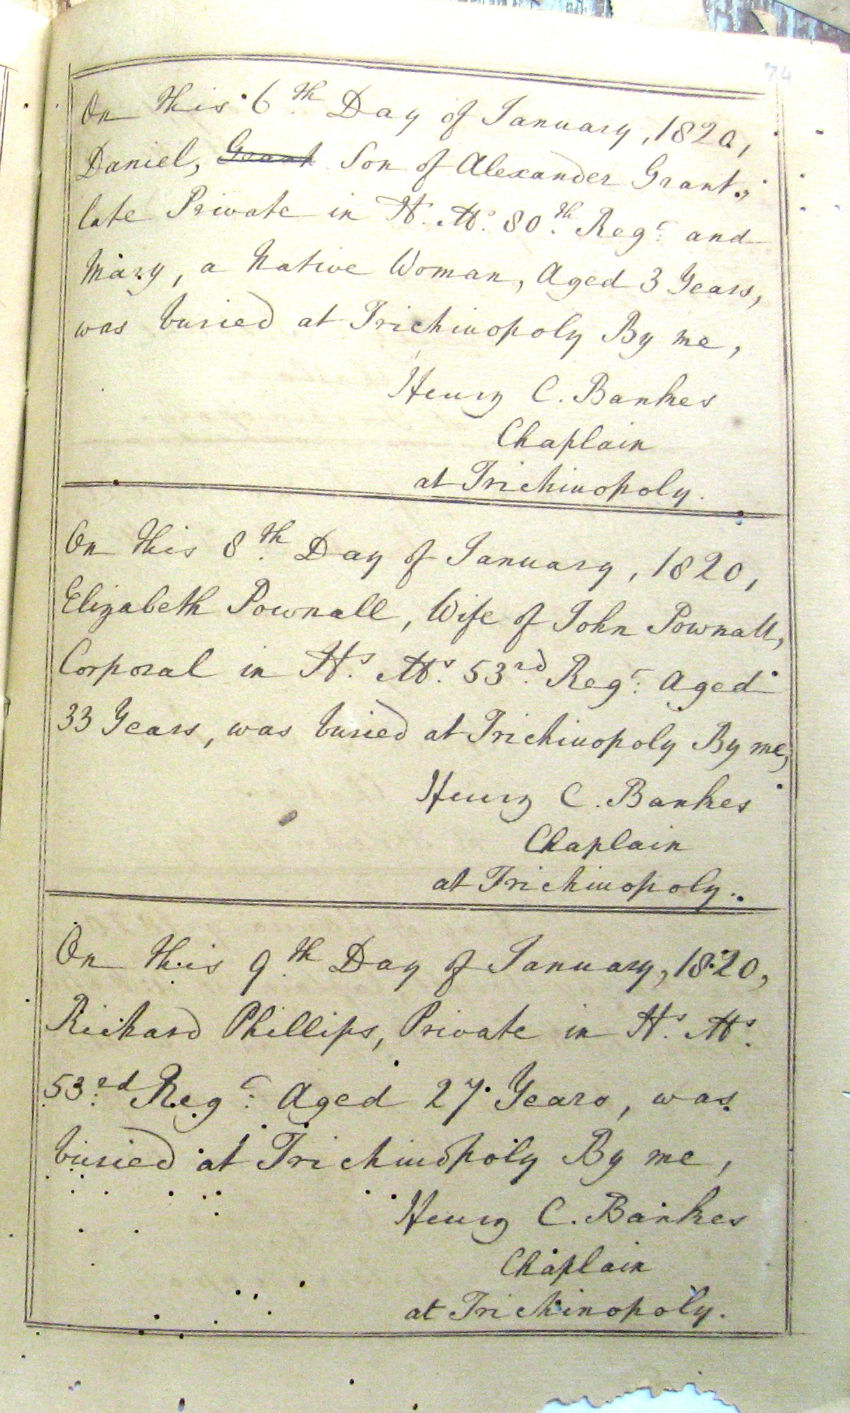 74
On this 6th Day of January, 1820,
Daniel, Grant Son of Alexander Grant,
late Private in H. M. 80th Regt and
Mary, a Native Woman, Aged 3 Years,
was buried at Trichinopoly By me,
Henry C. Bankes
Chaplain
at Trichinopoly.
On this 8th Day of January, 1820,
Elizabeth Pownall, Wife of John Pownall,
Corporal in Hs. Ms. 53rd Regt. Aged
33 Years, was buried at Trichinopoly By me,
Henry C. Bankes
Chaplain
at Trichinopoly.
On this 9th Day of January, 1820,
Richard Phillips, Private in Hs. Ms.
53rd Regt. Aged 27 Years, was
buried at Trichinopoly By me,
Henry C. Bankes
Chaplain
at Trichinopoly.